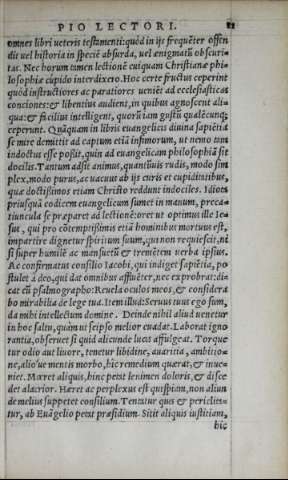 PIO LECTORI.
omnes libri ueteris testamenti: quòd in ijs frequẽter offen
dit uel historia in speciẽ absurda, uel ænigmatũ obscuri=
tas. Nec horum tamen lectionẽ cuiquam Christianæ phi
losophiæ cupido interdixero. Hoc certe fructus ceperint
quòd instructiores ac paratiores ueniẽt ad ecclesiasticas
conciones: & libentius audient, in quibus agnoscent ali=
qua: & facilius intelligent, quorũ iam gustũ qualẽcunq;
ceperunt. Quãquam in libris euangelicis diuina sapiẽtia
se mire demittit ad captum etiã infimorum, ut nemo tam
indoctus esse possit, quin ad euangelicam philosophiã sit
docilis. Tantum adsit animus, quantũuis rudis, modo sim
plex, modo purus, ac uacuus ab ijs curis et cupiditatibus,
quæ doctißimos etiam Christo reddunt indociles. Idiota
priusquã codicem euangelicum sumet in manum, preca=
tiuncula se præparet ad lectionẽ: oret ut optimus ille Ie=
sus, qui pro cõtemptißimis etiã hominibus mortuus est,
impartire dignetur spiritum suum, qui non requiescit, ni
si super humilẽ ac mansuetũ & tremẽtem uerba ipsius.
Ac confirmatus consilio Iacobi, qui indiget sapiẽtia, po
stulet à deo, qui dat omnibus affluẽter, nec exprobrat: di=
cat cũ psalmographo: Reuela oculos meos, & considera
bo mirabilia de lege tua. Item illud: Seruus tuus ego sum,
da mihi intellectum domine. Deinde nihil aliud uenetur
in hoc saltu, quàm ut seipso melior euadat. Laborat igno
rantia, obseruet si quid alicunde lucis affulgeat. Torque
tur odio aut liuore, tenetur libidine, auaritia, ambitio=
ne, alio'ue mentis morbo, hic remedium quærat, & inue=
niet. Mœret aliquis, hinc petat lenimen doloris, & disce
det alacrior. Hæret ac perplexus est quispiam, non aliun
de melius suppetet consilium. Tentatur quis & periclita=
tur, ab Euãgelio petat præsidium. Sitit aliquis iustitiam,
hic